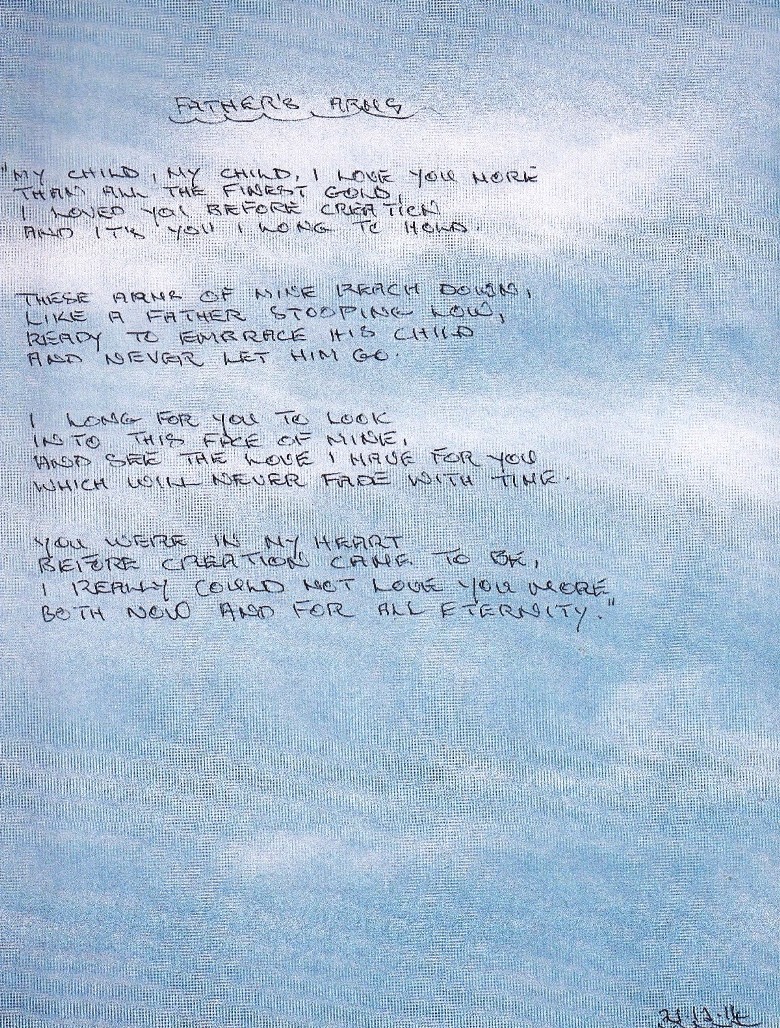 FATHER'S ARMS
"MY CHILD, MY CHILD, I LOVE YOU MORE
THAN ALL THE FINEST GOLD,
I LOVED YOU BEFORE CREATION
AND IT'S YOU I LONG TO HOLD.
THESE ARMS OF MINE REACH DOWN,
LIKE A FATHER STOOPING LOW,
READY TO EMBRACE HIS CHILD
AND NEVER LET HIM GO.
I LONG FOR YOU TO LOOK
INTO THIS FACE OF MINE,
AND SEE THE LOVE I HAVE FOR YOU
WHICH WILL NEVER FADE WITH TIME.
YOU WERE IN MY HEART
BEFORE CREATION CAME TO BE,
I REALLY COULD NOT LOVE YOU MORE
BOTH NOW AND FOR ALL ETERNITY."